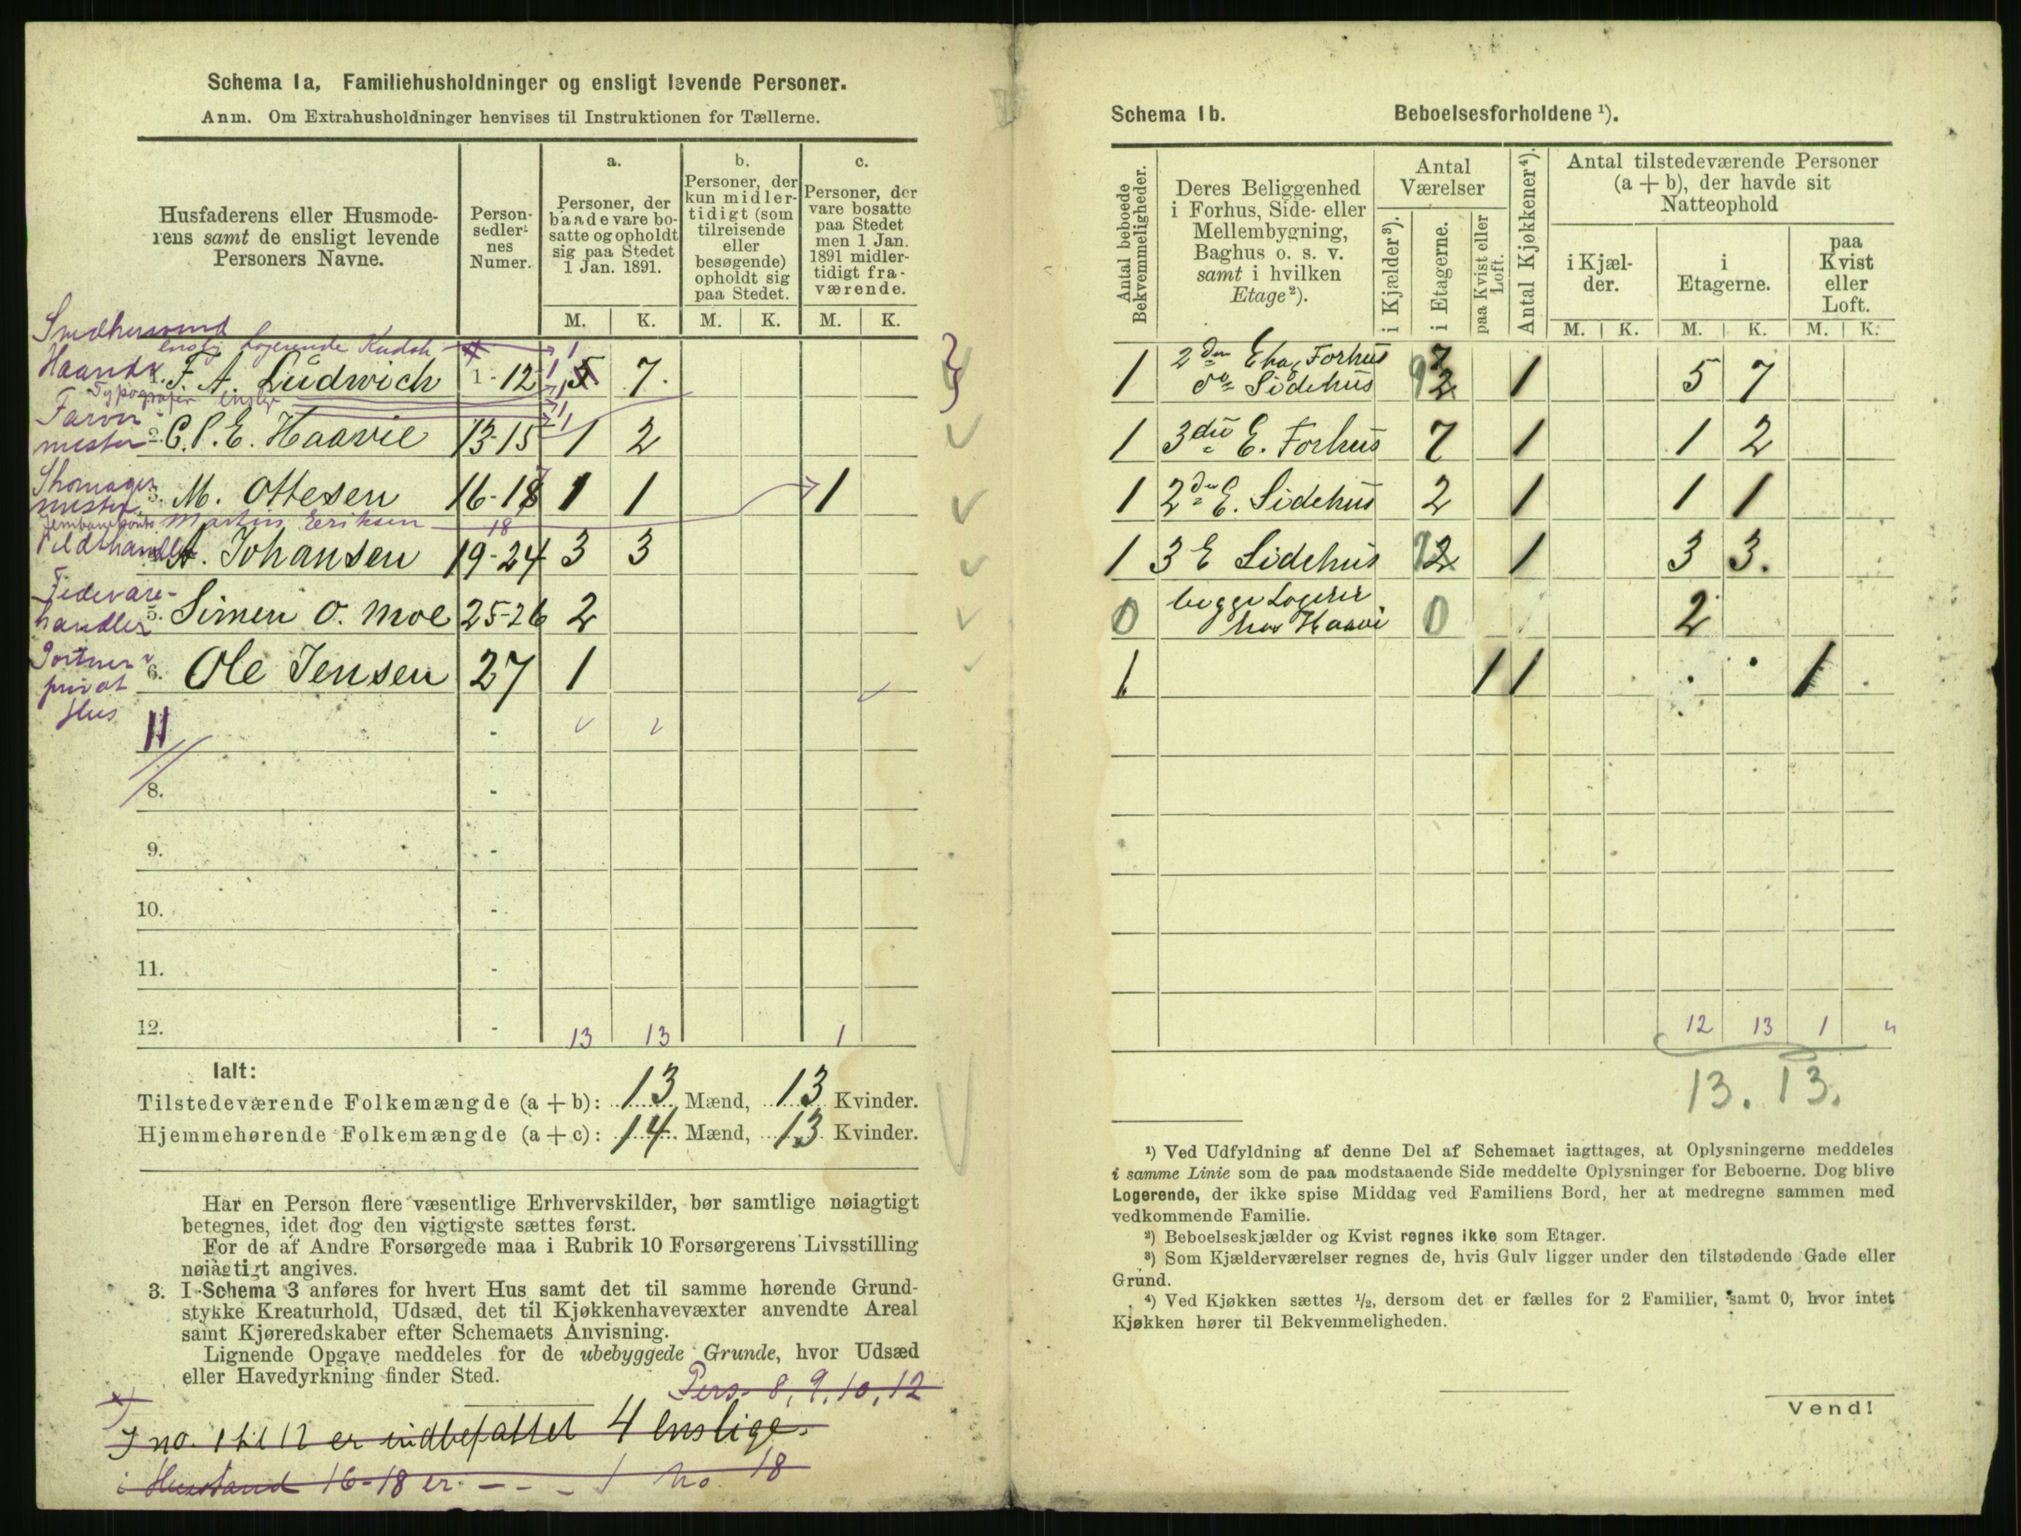 Schema 1a, Familiehusholdninger og ensligt levende Personer.
Anm. Om Extrahusholdninger henvises til Instruktionen for Tællerne.
Husfaderens eller Husmode-
rens samt de ensligt levende
Personers Navne.
Person-
sedler-
nes
Numer.
a.
Personer, der
baade vare bo-
satte og opholdt
sig paa Stedet
1 Jan. 1891.
b.
Personer, der
kun midler-
tidigt (som
tilreisende
eller
besøgende)
opholdt sig
paa Stedet.
c.
Personer, der
vare bosatte
paa Stedet
men 1 Jan.
1891 midler-
tidigt fra-
værende.
M. K. M. K. M. K.
enslig Logerende Kudsk 1
F. A. Ludwich 1-12 5 7.
Typografer enslige
Farver
mester 2. C. P. E. Haavie 13-15 1 2
3. M. Ottesen 16-18 1 1 1
Martin Eriksen 18
A. Johansen 19-24 3 3
Fedevare-
handler 5. Simen O. Moe 25-26 2
Portner i
privat
Hus
6. Ole Jensen 27 1
11
8. -
9. -
10. -
11. -
12. - 13 13 1
Ialt:
Tilstedeværende Folkemængde (a + b): 13 Mænd, 13 Kvinder.
Hjemmehørende Folkemængde (a + c): 14 Mænd, 13 Kvinder.
Har en Person flere væsentlige Erhvervskilder, bør samtlige nøiagtigt
betegnes, idet dog den vigtigste sættes først.
For de af Andre Forsørgede maa i Rubrik 10 Forsørgerens Livsstilling
nøiagtigt angives.
3. I Schema 3 anføres for hvert Hus samt det til samme hørende Grund-
stykke Kreaturhold, Udsæd, det til Kjøkkenhavevæxter anvendte Areal
samt Kjøreredskaber efter Schemaets Anvisning.
Lignende Opgave meddeles for de ubebyggede Grunde, hvor Udsæd
eller Havedyrkning finder Sted.
Pers 8, 9, 10, 12
I no. 1 til 12 er indbefattet 4 enslige.
i Husstand 16-18 er - - - 1 no. 18
Schema 1b. Beboelsesforholdene ¹).
Antal beboede
Bekvemmeligheder.
Deres Beliggenhed
i Forhus, Side- eller
Mellembygning,
Baghus o. s. v.
samt i hvilken
Etage²).
Antal
Værelser
i Kjælder³).
i Etagerne.
paa Kvist eller
Loft.
Antal Kjøkkener⁴).
Antal tilstedeværende Personer
(a + b), der havde sit
Natteophold
i Kjæl-
der.
i
Etagerne.
paa
Kvist
eller
Loft.
M. K. M. K. M. K.
2den Etag Forhus 7
1 do Sidehus 2 1 5 7
1 3die E. Forhus 7 1 1 2
1 2den E. Sidehus 2 1 1 1
1 3 E Sidehus 2 1 3 3.
begge Logerer
0 hos Haavi 0 2
1 1 1 1
12 13 1 "
13. 13.
¹) Ved Udfyldning af denne Del af Schemaet iagttages, at Oplysningerne meddeles
i samme Linie som de paa modstaaende Side meddelte Oplysninger for Beboerne. Dog blive
Logerende, der ikke spise Middag ved Familiens Bord, her at medregne sammen med
vedkommende Familie.
²) Beboelseskjælder og Kvist regnes ikke som Etager.
³) Som Kjælderværelser regnes de, hvis Gulv ligger under den tilstødende Gade eller
Grund.
⁴) Ved Kjøkken sættes ½, dersom det er fælles for 2 Familier, samt 0, hvor intet
Kjøkken hører til Bekvemmeligheden.
Vend!